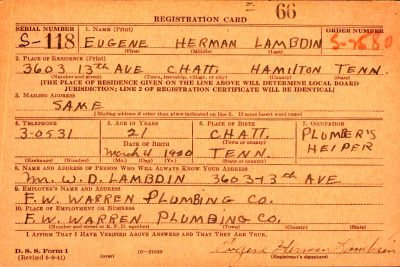 REGISTRATION CARD 66
SERIAL NUMBER 1. NAME (Print) ORDER NUMBER
S-118 EUGENE HERMAN LAMBDIN S-7680
(First) (Middle) (Last)
2. PLACE OF RESIDENCE (Print)
3603 13TH AVE CHATT. HAMILTON TENN.
(Number and street) (Town, township, village, or city) (County) (State)
[THE PLACE OF RESIDENCE GIVEN ON THE LINE ABOVE WILL DETERMINE LOCAL BOARD
JURISDICTION; LINE 2 OF REGISTRATION CERTIFICATE WILL BE IDENTICAL]
3. MAILING ADDRESS
SAME
[Mailing address if other than place indicated on line 2. If same insert word same]
4. TELEPHONE 5. AGE IN YEARS 6. PLACE OF BIRTH 7. OCCUPATION
3-0531 21 CHATT. PLUMBER'S
DATE OF BIRTH (Town or county) HELPER
March 4 1920 TENN.
(Exchange) (Number) (Mo.) (Day) (Yr.) (State or country)
8. NAME AND ADDRESS OF PERSON WHO WILL ALWAYS KNOW YOUR ADDRESS
W. D. LAMBDIN 3603-13TH AVE
9. EMPLOYER'S NAME AND ADDRESS
F. W. WARREN PLUMBING CO.
10. PLACE OF EMPLOYMENT OR BUSINESS
F. W. WARREN PLUMBING CO.
(Number and street or R. F. D. number) (Town) (County) (State)
I AFFIRM THAT I HAVE VERIFIED ABOVE ANSWERS AND THAT THEY ARE TRUE.
D. S. S. Form 1 (over) 16-21630 Eugene Herman Lambdin
(Revised 6-9-41) (Registrant's signature)